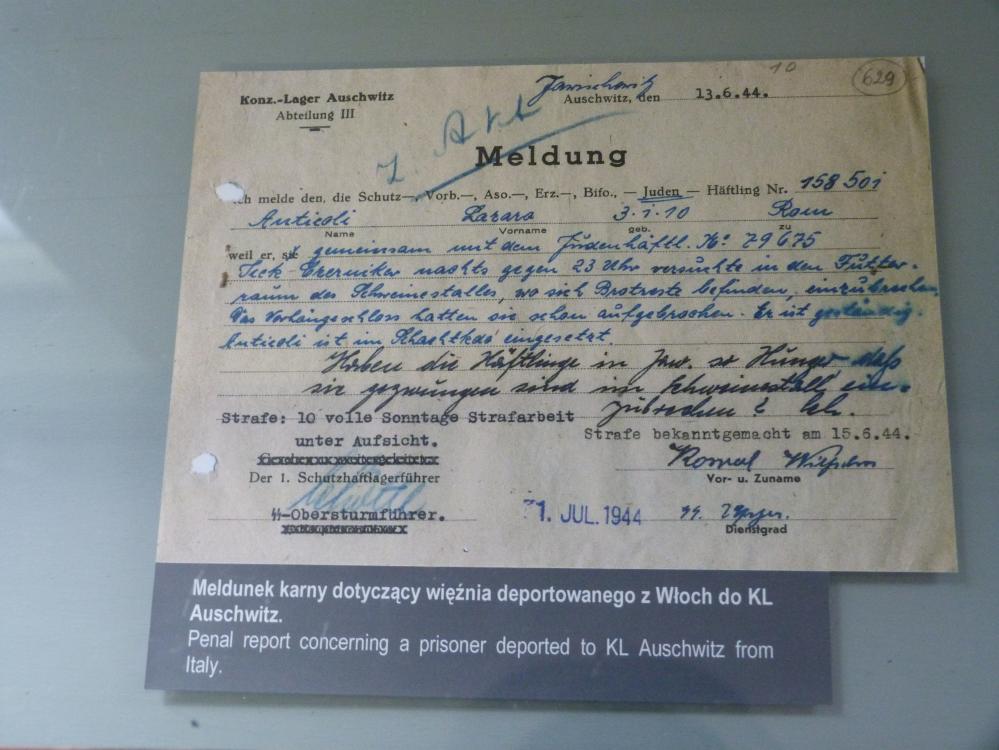 10
629
Jawischowitz
Konz.-Lager Auschwitz
Auschwitz, den 13.6.44.
Abteilung III
z. Akt
Meldung
Ich melde den, die Schutz—, Vorb.—, Aso.—, Erz.—, Bifo., — Juden — Häftling Nr. 158 501
Anticoli Lazaro 3.1.10 Rom
Name Vorname geb. zu
weil er, sie gemeinsam mit dem Judenhäftl. No: 79675
Czerniker nachts gegen 23 Uhr versuchte in den Futter-
raum des Schweinestalles, wo sich Brotreste befinden, einzubrechen.
Das Vorhängeschloss hatten sie schon aufgebrochen. Er ist geständig.
Anticoli ist im Schachtkdo eingesetzt.
Haben die Häftlinge in Jaw. so Hunger daß
sie gezwungen sind im Schweinestall ein-
zubrechen?
Strafe: 10 volle Sonntage Strafarbeit
unter Aufsicht.
Strafe bekanntgemacht am 15.6.44.
Wilhelm
Der 1. Schutzhaftlagerführer
Vor- u. Zuname
SS-Obersturmführer.
1. JUL. 1944
Dienstgrad
Meldunek karny dotyczący więźnia deportowanego z Włoch do KL
Auschwitz.
Penal report concerning a prisoner deported to KL Auschwitz from
Italy.